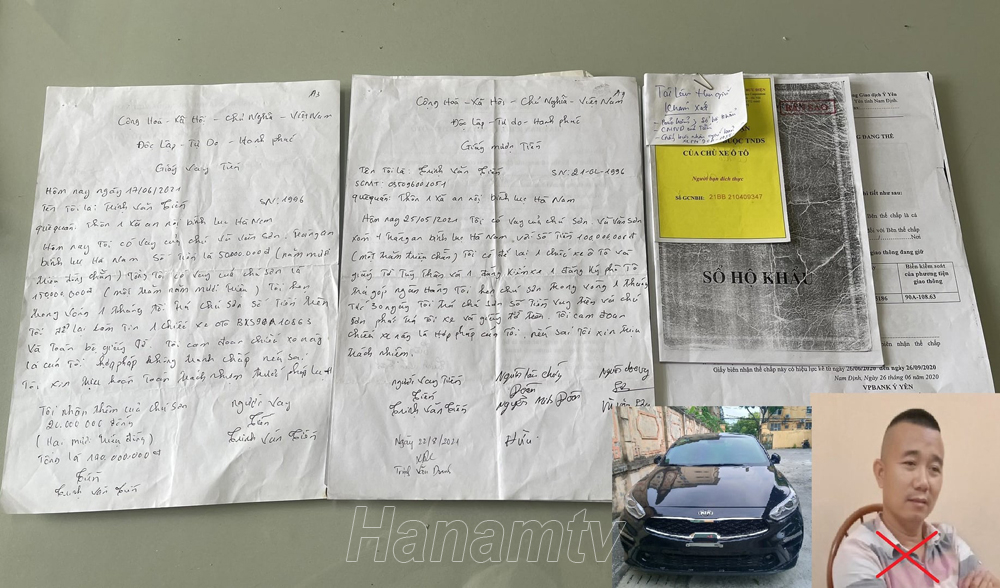 A3
Cộng Hoà - Xã Hội - Chủ Nghĩa - Việt Nam
Độc Lập - Tự Do - Hạnh phúc
Giấy Vay Tiền
Hôm nay ngày 17/06/2021
Tên Tôi là: Trịnh Văn Tiến SN: 1996
quê quán: Thôn 1 xã an nội bình lục Hà Nam
Hôm nay Tôi có vay của chú Vũ Văn Sơn,
bình lục Hà Nam Số Tiền là 50.000.000đ (năm mươi
Triệu đồng chẵn) Tổng Tôi có vay của chú Sơn là
150.000.000đ (một trăm năm mươi Triệu) Tôi hẹn
Trong vòng 1 tháng Tôi trả chú Sơn số Tiền trên
Tôi để lại làm Tin 1 chiếc xe oto BKS90A10863
Và toàn bộ giấy Tờ. Tôi cam đoan chiếc xe này
là của Tôi hợp pháp không tranh chấp nếu sai
Tôi xin chịu hoàn toàn trách nhiệm trước pháp luật
Tôi nhận thêm của chú Sơn
20.000.000 đồng
(Hai mươi triệu đồng)
người vay
Tiến
Trịnh Văn Tiến
Tiến
Trịnh Văn Tiến
Cộng Hoà - Xã Hội - Chủ Nghĩa - Việt Nam
Độc Lập - Tự Do - Hạnh phúc
Giấy mượn Tiền
Tên Tôi là Trịnh Văn Tiến SN: 21-04-1996
SCMT: 035096001051
quê quán: Thôn 1 Xã an nội bình lục Hà Nam
Hôm nay 25/05/2021 Tôi có vay của chú Vũ Văn Sơn
xóm 4 Tràng an bình lục Hà Nam với Số Tiền 100.000.000đ
(một trăm triệu chẵn) Tôi có để lại 1 chiếc xe ô Tô và
giấy Tờ Tuỳ Thân và 1 đăng kiểm xe 1 đăng ký phô Tô
Trả góp ngân hàng Tôi hẹn chú Sơn trong vòng 1 tháng
Tức 30 ngày Tôi Trả chú Sơn số Tiền vay trên và chú
Sơn phải trả Tôi xe và giấy tờ trên. Tôi cam đoan
chiếc xe này là Hợp pháp của Tôi, nếu sai Tôi xin chịu
trách nhiệm.
người vay Tiền
Tiến
Trịnh Văn Tiến
Người làm chứng
Ngày 22/8/2021
Tài liệu thu giữ
khám xét
CỦA CHỦ XE Ô TÔ
Người bạn đích thực
Số GCNBH: 21BB 210409347
SỔ HỘ KHẨU
Giao dịch Ý Yên
Tỉnh Nam Định
ĐANG THẾ
tiết như sau:
Bên thế chấp là cá
giao thông đang giữ
Biển kiểm soát
của phương tiện
giao thông
90A-108.63
Giấy biên nhận thế chấp này có hiệu lực kể từ ngày 26/06/2020 đến ngày 26/09/2020
Nam Định, Ngày 26 tháng 06 năm 2020
VPBANK Ý YÊN
KIA
Hanamtv